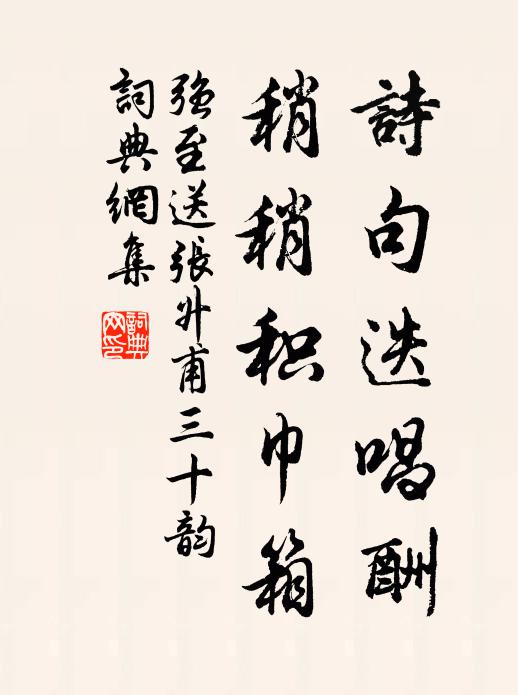 詩句迭唱酬
稍稍积巾箱
强至送張升甫三十韵
詞典網集
詞典
网印